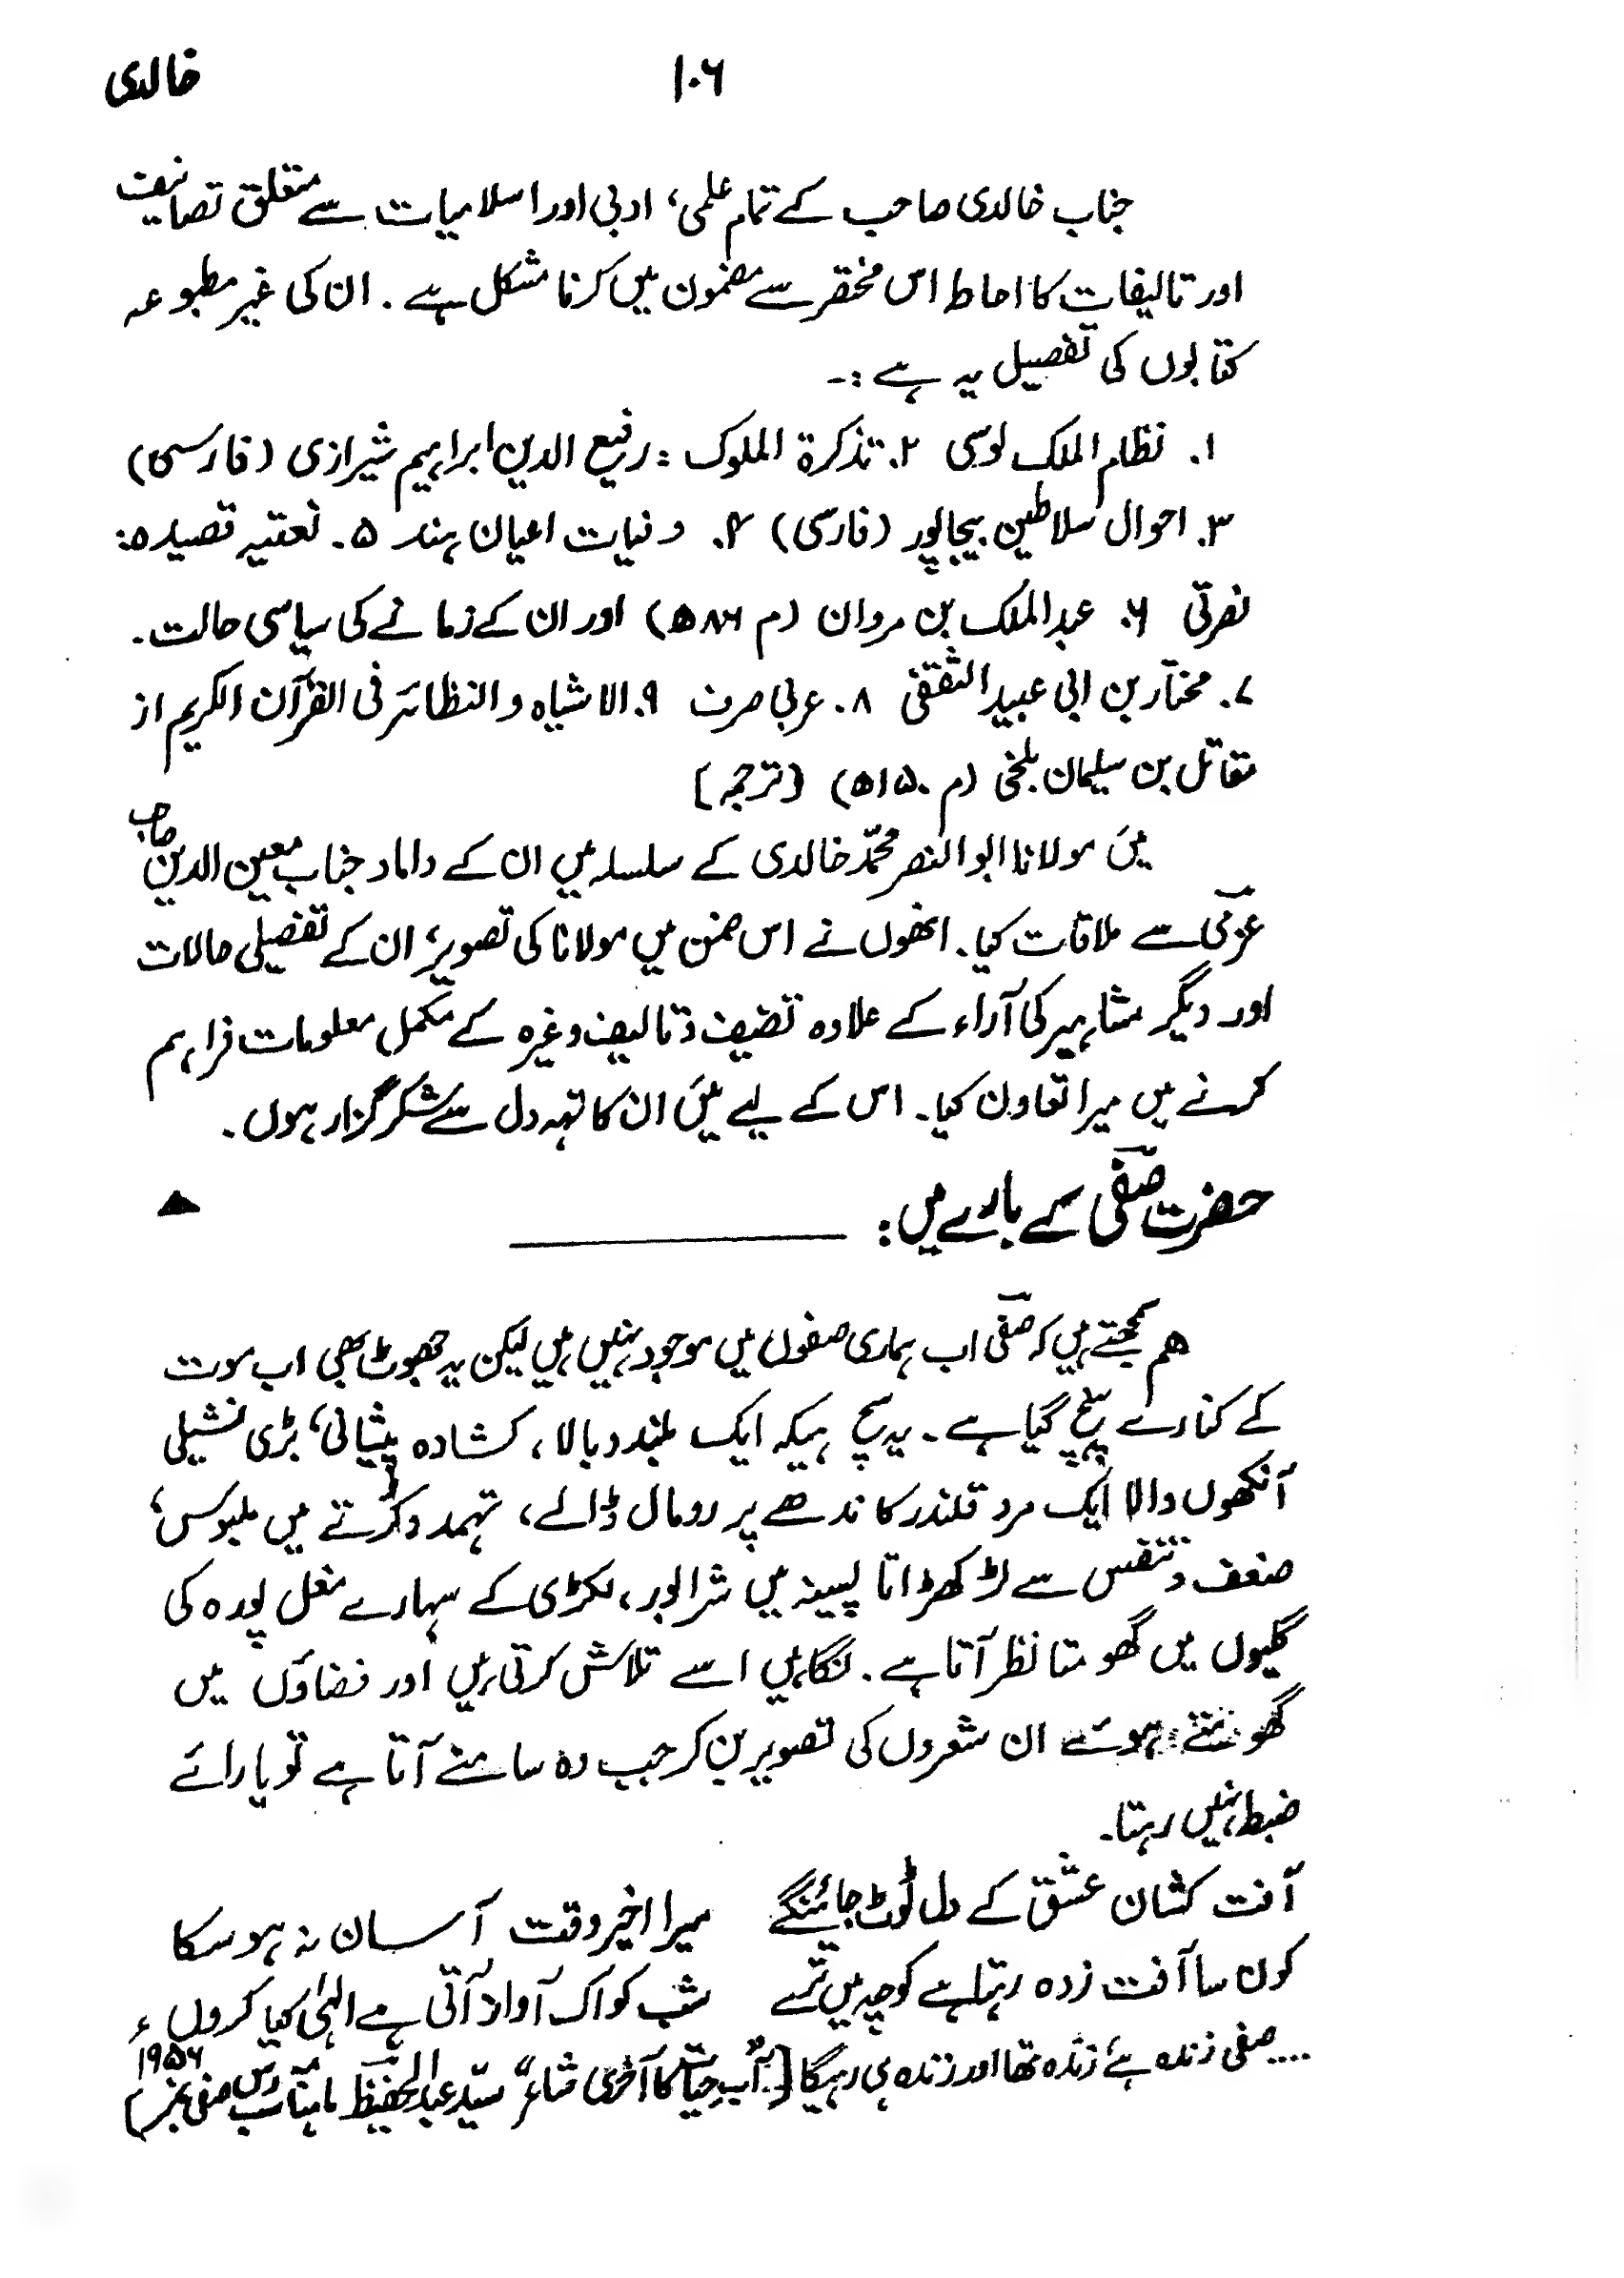 خالدی
۱۰۶
جناب خالدی صاحب کے تمام علمی، ادبی اور اسلامیات سے متعلق تصانیف
اور تالیفات کا احاطہ اس مختصر سے مضمون میں کرنا مشکل ہے۔ ان کی غیر مطبوعہ
کتابوں کی تفصیل یہ ہے :۔
۱. نظام الملک طوسی ۲. تذکرۃ الملوک : رفیع الدین ابراہیم شیرازی (فارسی)
۳. احوال سلاطین بیجاپور (فارسی) ۴. وفیات اعیان ہند ۵. نعتیہ قصیدہ:
نصرتی ۶. عبدالملک بن مروان (م ۸۶ھ) اور ان کے زمانے کی سیاسی حالت۔
۷. مختار بن ابی عبید الثقفی ۸. عربی صرف ۹. الاشباہ والنظائر فی القرآن الکریم از
مقاتل بن سلیمان بلخی (م ۱۵۰ھ) [ترجمہ]
میں مولانا ابوالنصر محمد خالدی کے سلسلہ میں ان کے داماد جناب معین الدین صاحب
عزمی سے ملاقات کیا۔ انھوں نے اس ضمن میں مولانا کی تصویر، ان کے تفصیلی حالات
اور دیگر مشاہیر کی آراء کے علاوہ تصنیف و تالیف وغیرہ کے مکمل معلومات فراہم
کرنے میں میرا تعاون کیا۔ اس کے لیے میں ان کا تہہ دل سے شکر گزار ہوں۔
حضرت صفیؔ کے بارے میں :
ہم سمجھتے ہیں کہ صفیؔ اب ہماری صفوں میں موجود نہیں ہیں لیکن یہ جھوٹ بھی اب موت
کے کنارے پہنچ گیا ہے۔ یہ سچ ہیکہ ایک بلند و بالا، کشادہ پیشانی، بڑی نشیلی
آنکھوں والا ایک مرد قلندر کاندھے پر رومال ڈالے، تہمد و کرُتے میں ملبوس،
ضعف و تنفس سے لڑکھڑاتا پسینہ میں شرابور، لکڑی کے سہارے مغل پورہ کی
گلیوں میں گھومتا نظر آتا ہے۔ نگاہیں اسے تلاش کرتی ہیں اور فضاؤں میں
ہوئے ان شعروں کی تصویر بن کر جب وہ سامنے آتا ہے تو یارائے
ضبط نہیں رہتا۔
آفت کشان عشق کے دل ٹوٹ جائینگے میرا اخیر وقت آسان نہ ہو سکا
کون سا آفت زدہ رہتا ہے کوچہ میں ترے شب کو اک آواز آتی ہے الٰہی کیا کروں
.... صفی زندہ ہے، زندہ تھا اور زندہ ہی رہیگا [ "آبِ حیات کا آخری شاعر" سید عبدالحفیظ ماہتاب سب رس صفی نمبر ۱۹۵۶ء]